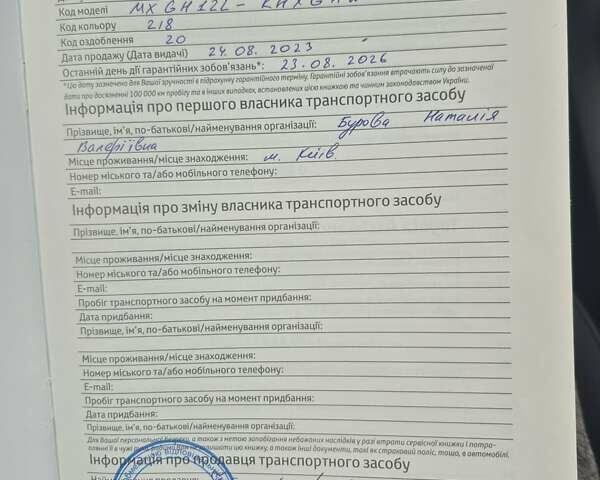 Код моделі MXGH12L-
Код кольору 218
Код оздоблення 20
Дата продажу (Дата видачі) 24.08.2023
Останній день дії гарантійних зобов'язань*: 23.08.2026
*Цю дату зазначено для Вашої зручності в підрахунку гарантійного терміну. Гарантійні зобов'язання втрачають силу до зазначеної
дати при досягненні 100 000 км пробігу та в інших випадках, встановлених цією книжкою та чинним законодавством України.
Інформація про першого власника транспортного засобу
Прізвище, ім'я, по-батькові/найменування організації: Бурова Наталія
Валеріївна
Місце проживання/місце знаходження: м. Київ
Номер міського та/або мобільного телефону:
E-mail:
Інформація про зміну власника транспортного засобу
Прізвище, ім'я, по-батькові/найменування організації:
Місце проживання/місце знаходження:
Номер міського та/або мобільного телефону:
E-mail:
Пробіг транспортного засобу на момент придбання:
Дата придбання:
Прізвище, ім'я, по-батькові/найменування організації:
Місце проживання/місце знаходження:
Номер міського та/або мобільного телефону:
E-mail:
Пробіг транспортного засобу на момент придбання:
Дата придбання:
Прізвище, ім'я, по-батькові/найменування організації:
Для Вашої персональної безпеки, а також з метою запобігання небажаних наслідків у разі втрати сервісної книжки і потра-
пляння її в чужі руки, залишати цю книжку, а також інші документи, такі як страховий поліс, тощо, в автомобілі.
Інформація про продавця транспортного засобу